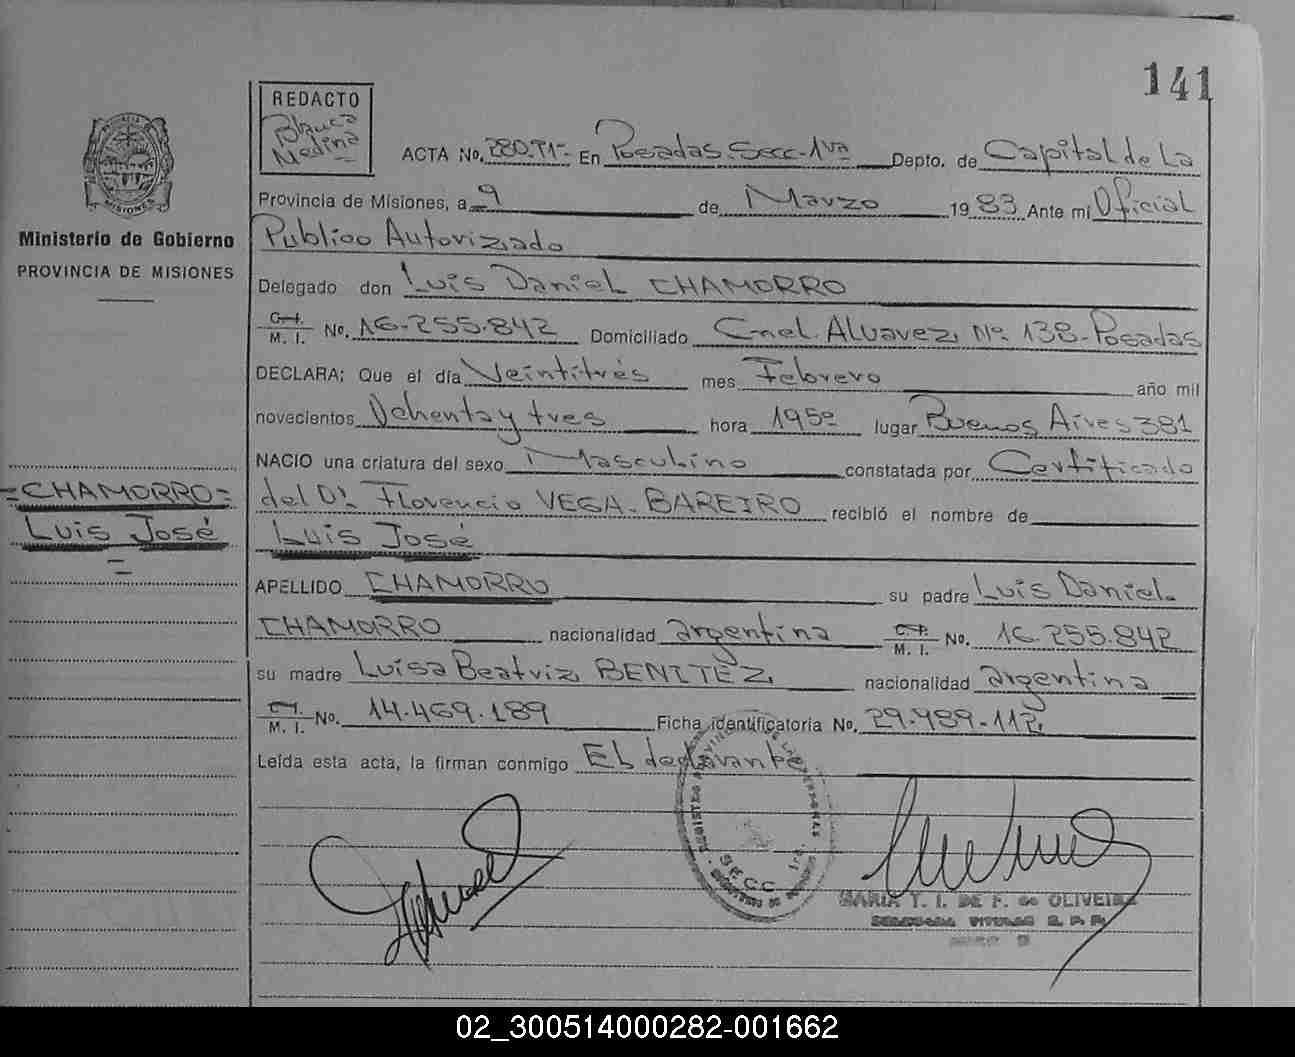 141
REDACTO
Blanca
Medina
ACTA No. 280.T1- En Posadas. Secc-1ra Depto. de Capital de La
Provincia de Misiones, a 9 de Marzo 1983 Ante mi Oficial
Publico Autorizado
Ministerio de Gobierno
PROVINCIA DE MISIONES
Delegado don Luis Daniel CHAMORRO
C. I.
M. I. No. 16.255.842 Domiciliado Cnel. Alvarez, Nº 138-Posadas
DECLARA; Que el día Veintitrés mes Febrero año mil
novecientos Ochenta y tres hora 1950 lugar Buenos Aires 381
NACIO una criatura del sexo Masculino constatada por Certificado
=CHAMORRO=
Luis José
=
del Dr. Florencio VEGA-BAREIRO recibió el nombre de
Luis José
APELLIDO CHAMORRO su padre Luis Daniel
CHAMORRO nacionalidad argentina C. I.
M. I. No. 16.255.842
su madre Luisa Beatriz BENITEZ, nacionalidad argentina
C. I.
M. I. No. 14.469.189 Ficha identificatoria No. 29.989-112,
Leída esta acta, la firman conmigo El declarante
SECC. 1ra.
MARIA T. I. DE F. de OLIVEIRA
02_300514000282-001662